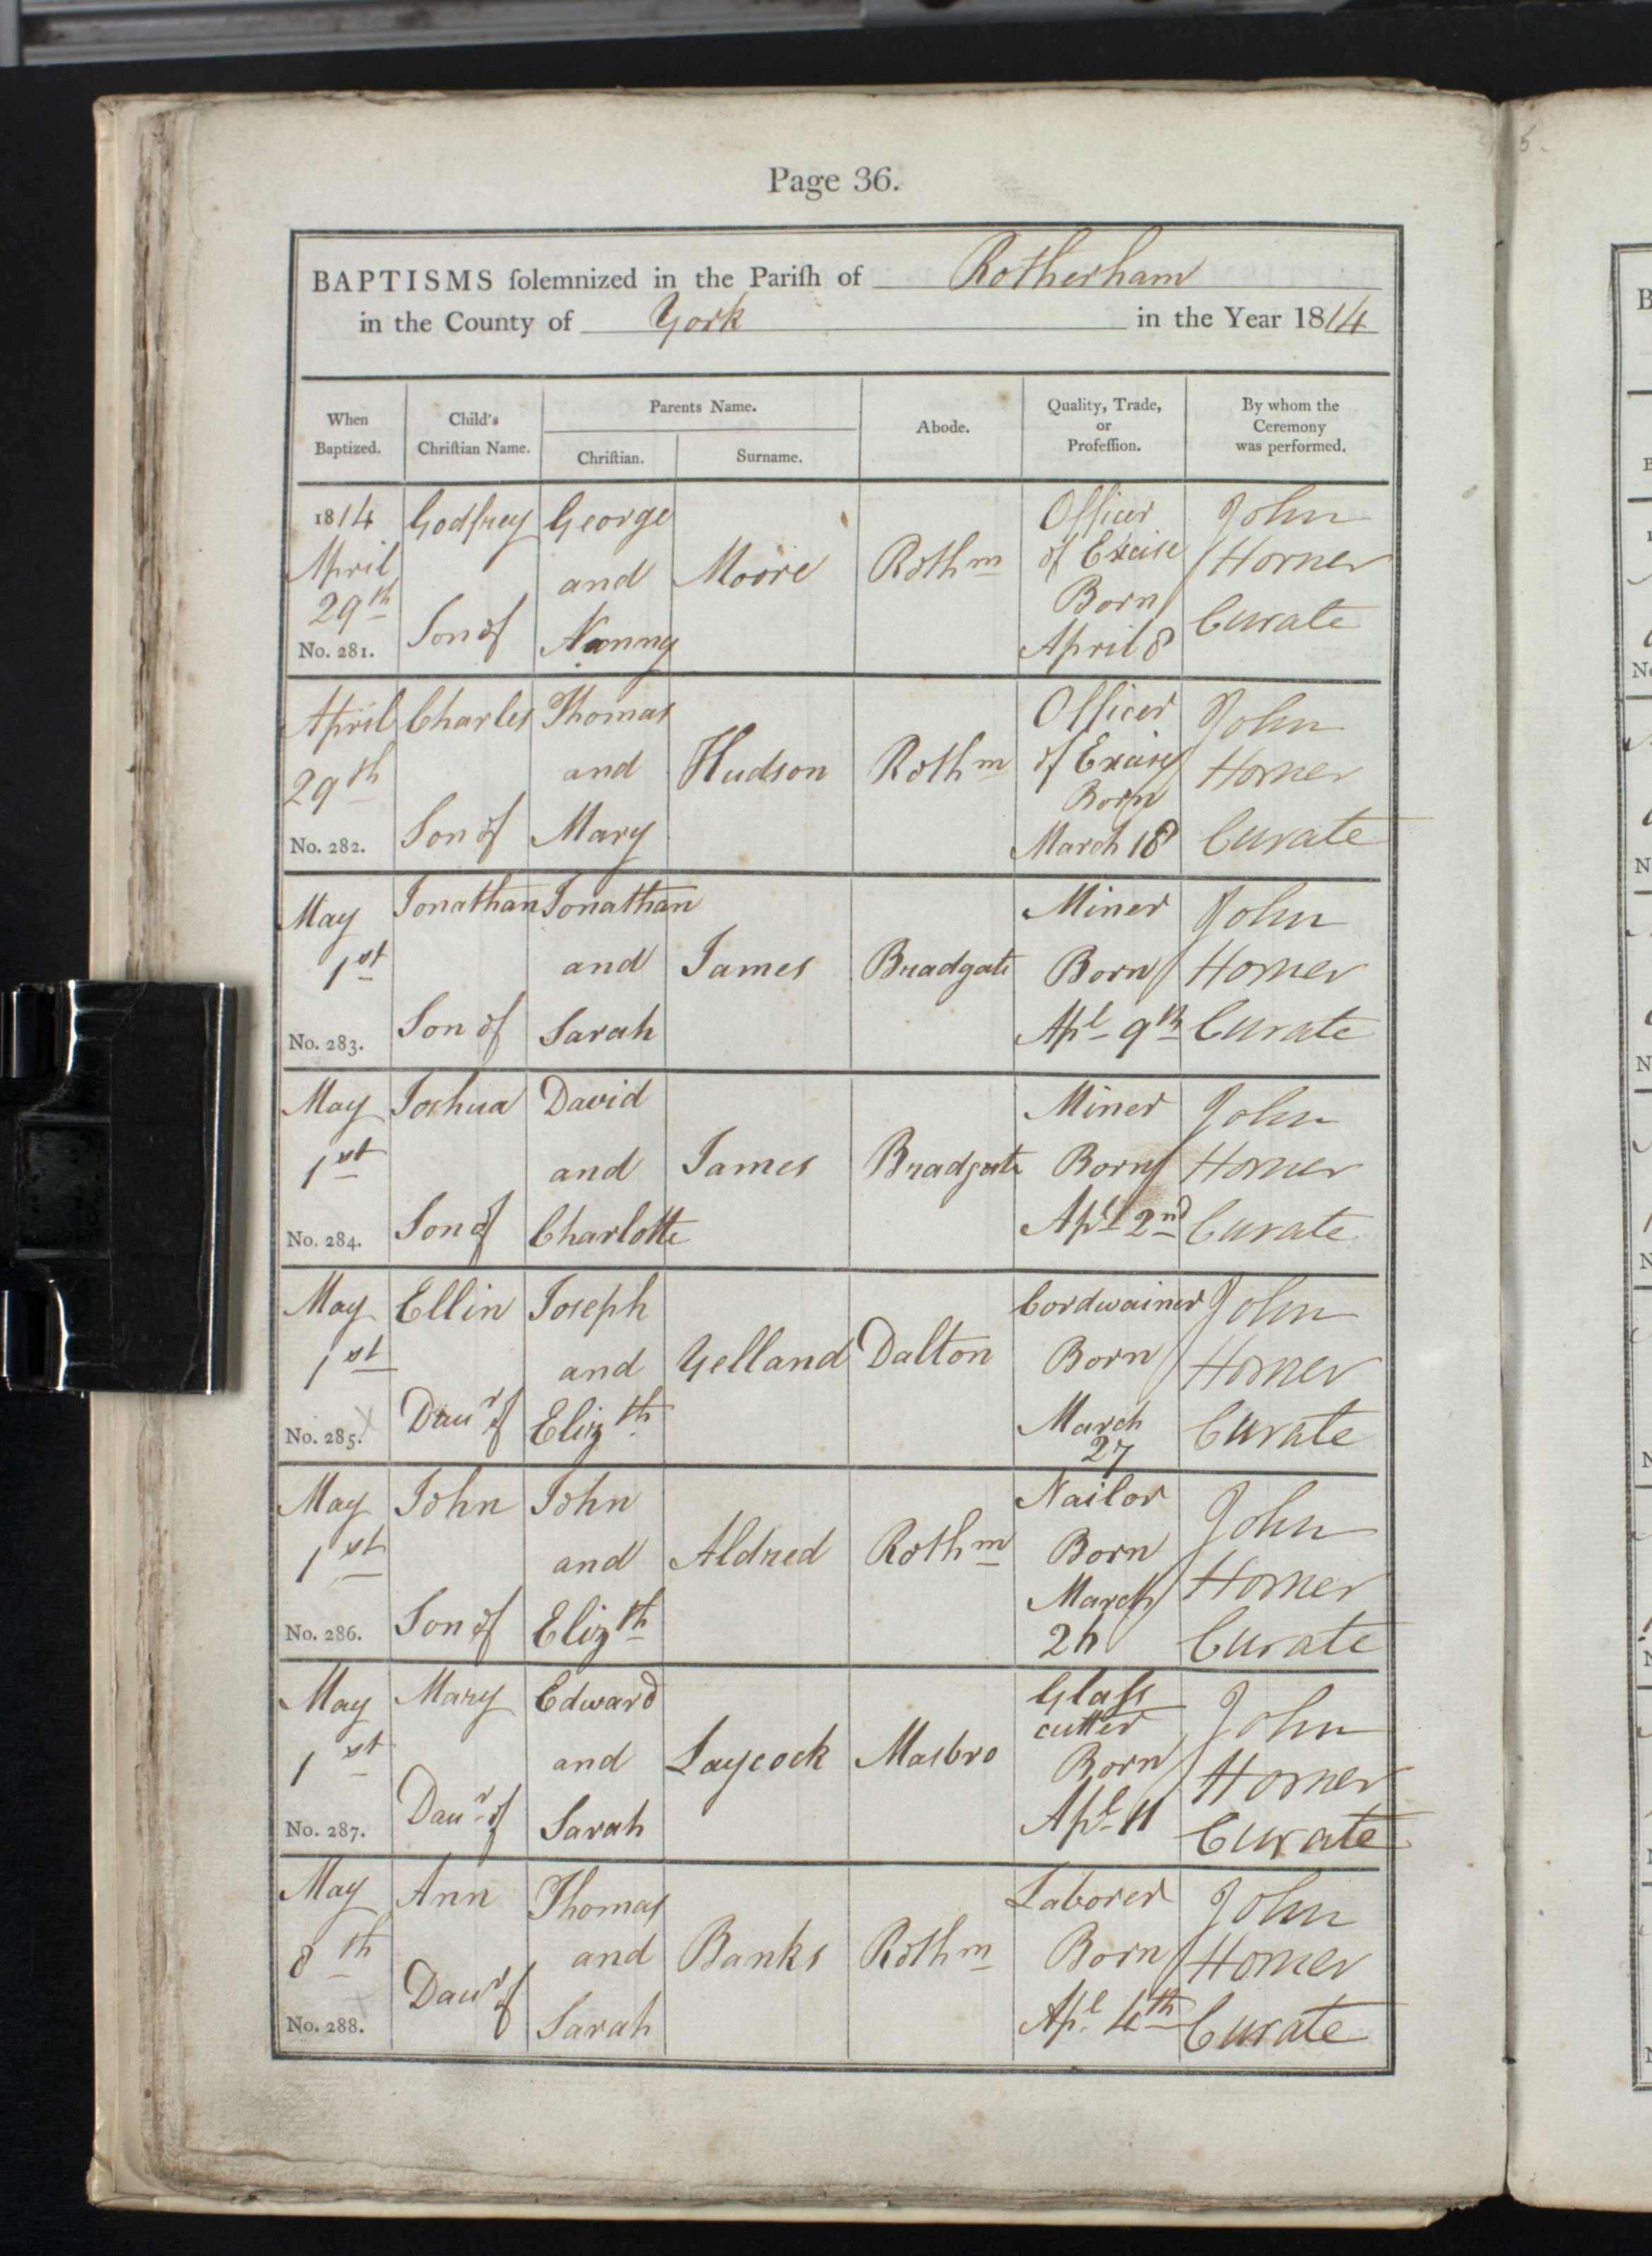 Page 36.
BAPTISMS ſolemnized in the Pariſh of Rotherham
in the County of York in the Year 1814
When Baptized. Child's Chriſtian Name. Parents Name. Chriſtian. Surname. Abode. Quality, Trade, or Profeſſion. By whom the Ceremony was performed.
1814 Godfrey George Officer John
April and Moore Rothm of Excise Horner
29th Born Curate
No. 281. Son of Nanny April 8
April Charles Thomas Officer John
29th and Hudson Rothm of Excise Horner
Born
No. 282. Son of Mary March 18 Curate
May Jonathan Jonathan Miner John
1st and James Bradgate Born Horner
No. 283. Son of Sarah Apl 9th Curate
May Joshua David Miner John
1st and James Bradgate Born Horner
No. 284. Son of Charlotte Apl 2nd Curate
May Ellin Joseph Cordwainer John
1st and Yelland Dalton Born Horner
No. 285. Daur of Elizth March Curate
27
May John John Nailor John
1st and Aldred Rothm Born Horner
March
No. 286. Son of Elizth Curate
May Mary Edward Glaſs John
cutter
1st and Laycock Masbro Born Horner
No. 287. Daur of Sarah Apl 11 Curate
May Ann Thomas Laborer John
8th and Banks Rothm Born Horner
No. 288. Daur of Sarah Apl 4th Curate